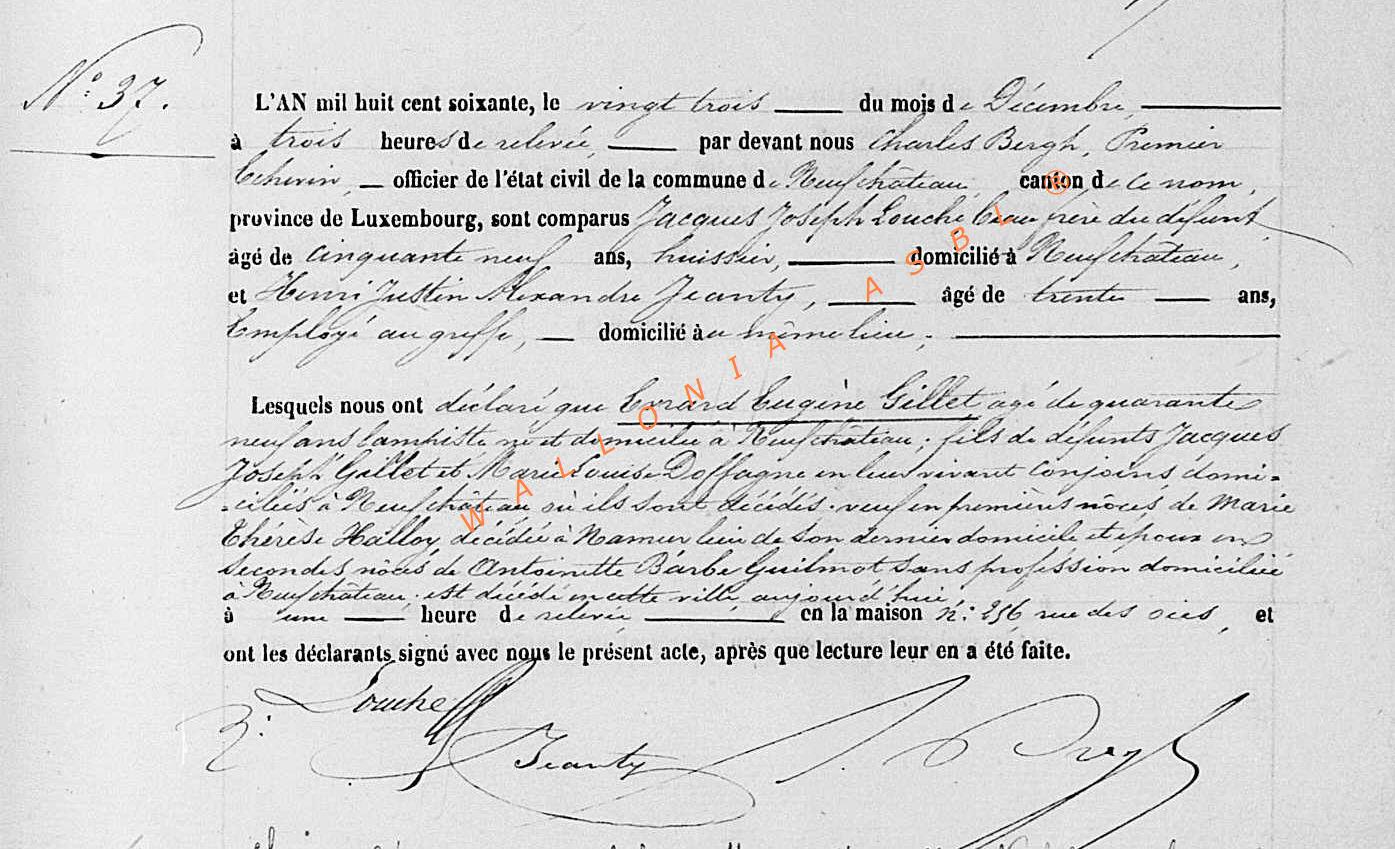 N° 37.
L'AN mil huit cent soixante, le vingt trois du mois de Décembre,
à trois heures de relevée, par devant nous Charles Bergh, Premier
Echevin, officier de l'état civil de la commune de Neufchâteau, canton de ce nom,
province de Luxembourg, sont comparus Jacques Joseph Louche beau frère du défunt,
âgé de cinquante neuf ans, huissier, domicilié à Neufchâteau,
et Henri Justin Alexandre Jeanty, âgé de trente ans,
Employé au greffe, domicilié au même lieu ;
Lesquels nous ont déclaré que Evrard Eugène Gillet, agé de quarante
neuf ans lampiste né et domicilié à Neufchâteau ; fils de défunts Jacques
Joseph Gillet et Marie Louise Doffagne en leur vivant conjoins, domi-
-ciliés à Neufchâteau où ils sont décédés. veuf en premières nôces de Marie
Thérèse Halloy décédée à Namur lieu de son dernier domicile et époux en
secondes nôces de Antoinette Barbe Guilmot sans profession domiciliée
à Neufchâteau. est décédé en cette ville aujourd'hui,
à une heure de relevée en la maison n°: 256 rue des oies, et
ont les déclarants signé avec nous le présent acte, après que lecture leur en a été faite.
Louche
Jeanty
Bergh
WALLONIA ASBL ®